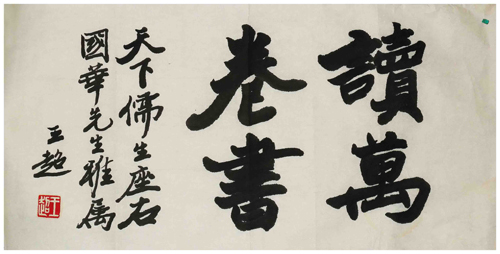 讀萬
卷書
天下儒生座右
國華先生雅属
王超
王超